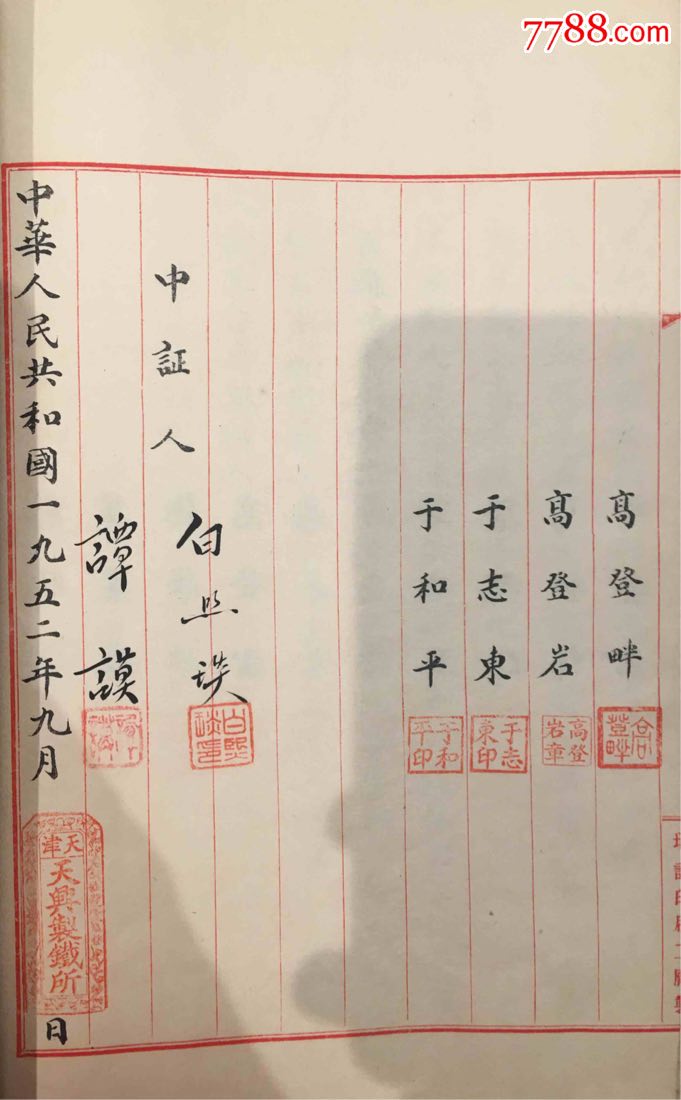 7788.com
高登畔
高登畔
高登岩
高登岩章
于志東
于志東印
于和平
于和平印
中証人
白熙琰
白熙琰印
譚謨
中華人民共和國一九五二年九月
天津
天興製鐵所
日